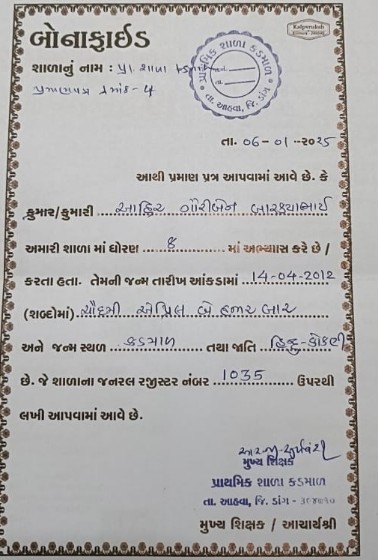 બોનાફાઈડ
Kalpvruksh
શાળાનું નામ : પ્રા. શાળા કડમાળ
પ્રમાણપત્ર ક્રમાંક - 4
પ્રાથમિક શાળા કડમાળ
તા. આહવા, જિ. ડાંગ
તા. 06-01-2025
આથી પ્રમાણ પત્ર આપવામાં આવે છે. કે
કુમાર/કુમારી આહિર ગૌરીબેન
અમારી શાળા માં ધોરણ 8 માં અભ્યાસ કરે છે /
કરતા હતા. તેમની જન્મ તારીખ આંકડામાં 14-04-2012
(શબ્દોમાં) ચૌદમી એપ્રિલ બે હજાર બાર
અને જન્મ સ્થળ કડમાળ તથા જાતિ હિન્દુ-કોકણી
છે. જે શાળાના જનરલ રજીસ્ટર નંબર 1035 ઉપરથી
લખી આપવામાં આવે છે.
મુખ્ય શિક્ષક
પ્રાથમિક શાળા કડમાળ
તા. આહવા, જિ. ડાંગ - ૩૯૪૭૧૦
મુખ્ય શિક્ષક / આચાર્યશ્રી